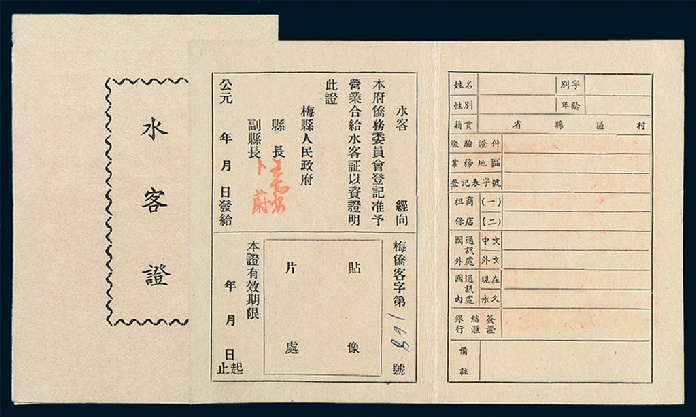 水客證
水客　　經向
本府僑務委員會登記准予
營業合給水客証以資證明
此證
梅縣人民政府
縣長
副縣長
公元　年　月　日發給
梅僑客字第　號
貼像
片處
本證有效期限
年　月　日起止
姓名　別字
性別　年齡
籍貫　省　縣　區　村
繳驗證件
業務地區
登記表字號
担保　商店　(一)
(二)
國外　通訊處　中文
外文
國內　通訊處　現在
永久
銀行　結滙　簽證
備註